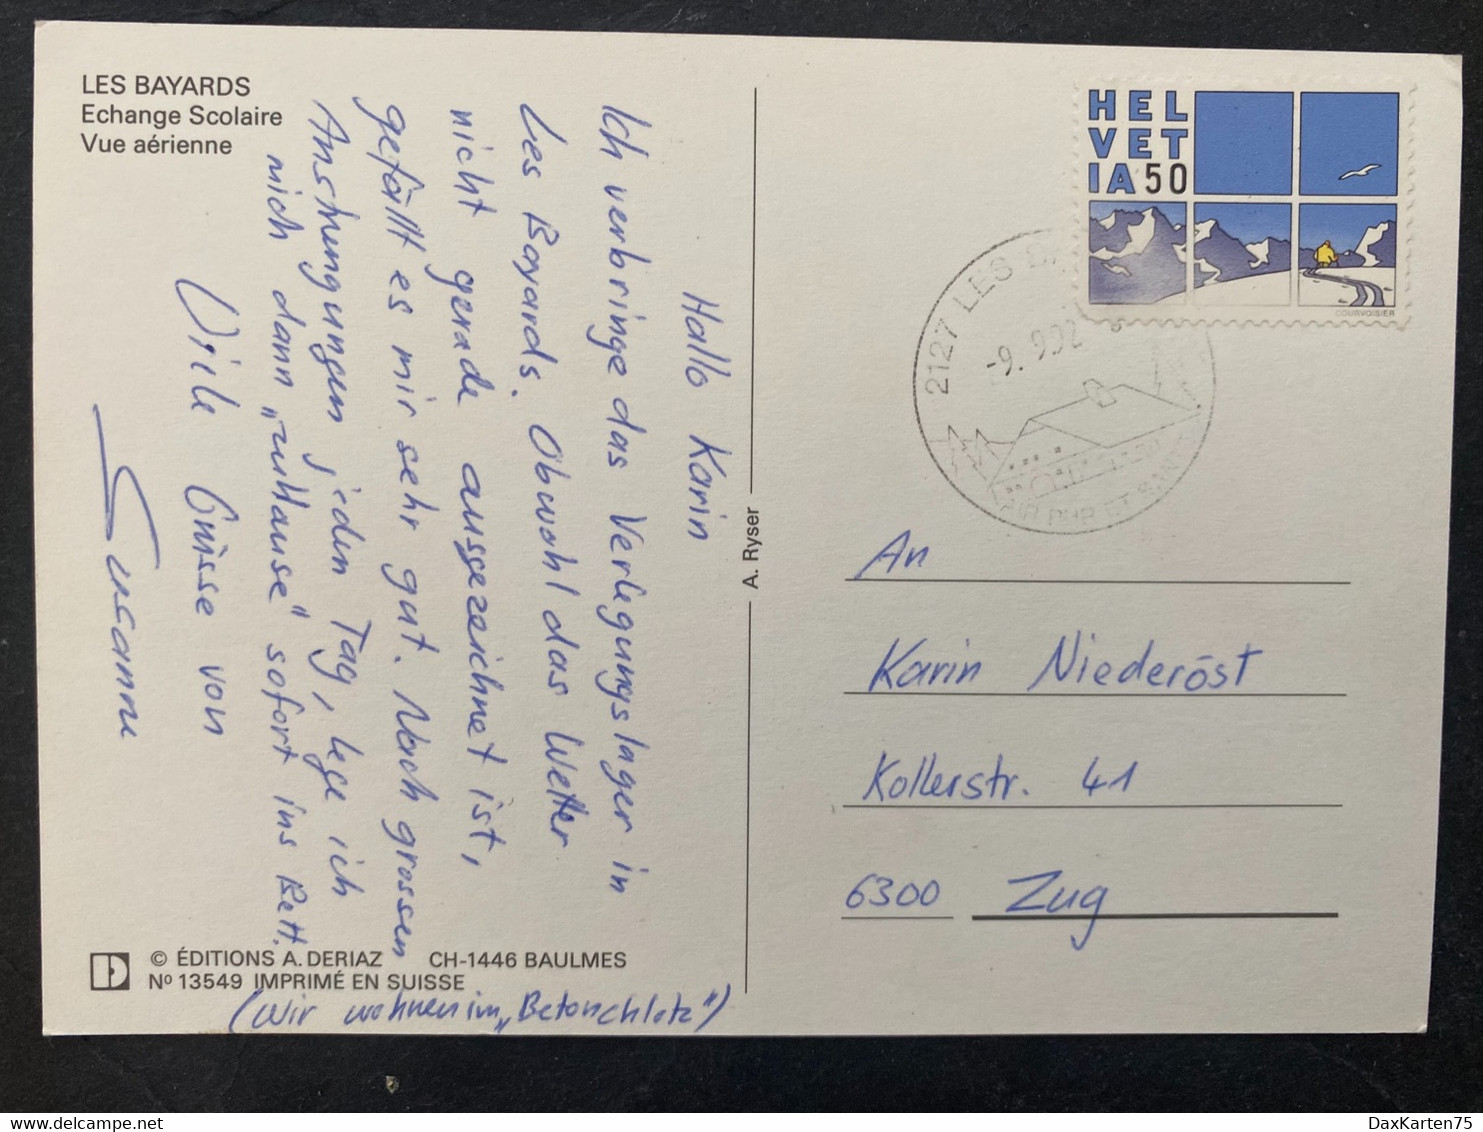 LES BAYARDS
Echange Scolaire
Vue aérienne
Hallo Karin
Ich verbringe das Verlegungslager in
Les Bayards. Obwohl das Wetter
nicht gerade ausgezeichnet ist,
gefällt es mir sehr gut. Nach grossen
Anstrengungen jeden Tag, lege ich
mich dann „zuHause" sofort ins Bett.
Viele Grüsse von
Susanne
(Wir wohnen im „Betonchlotz")
© ÉDITIONS A. DERIAZ CH-1446 BAULMES
Nº 13549 IMPRIMÉ EN SUISSE
A. Ryser
HEL
VET
IA 50
COURVOISIER
2127 LES
-9. 9.92
AIR PUR ET
An
Karin Niederöst
Kollerstr. 41
6300 Zug
DaxKarten75